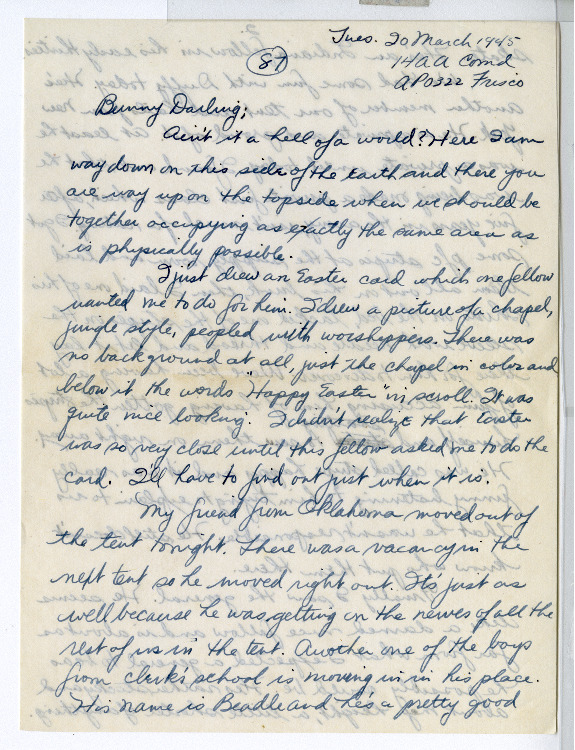 Tues. 20 March 1945
87
14 A A Comd
APO 322 Frisco
Bunny Darling;
Ain't it a hell of a world? Here I am
way down on this side of the Earth and there you
are way up on the topside when we should be
together occupying as exactly the same area as
is physically possible.
I just drew an Easter card which one fellow
wanted me to do for him. I drew a picture of a chapel,
jungle style, peopled with worshippers. There was
no background at all, just the chapel in color and
below it the words "Happy Easter" in scroll. It was
quite nice looking. I didn't realize that Easter
was so very close until this fellow asked me to do the
card. I'll have to find out just when it is.
My friend from Oklahoma moved out of
the tent tonight. There was a vacancy in the
next tent so he moved right out. It's just as
well because he was getting on the nerves of all the
rest of us in the tent. Another one of the boys
from clerk's school is moving in in his place.
His name is Beadle and he's a pretty good